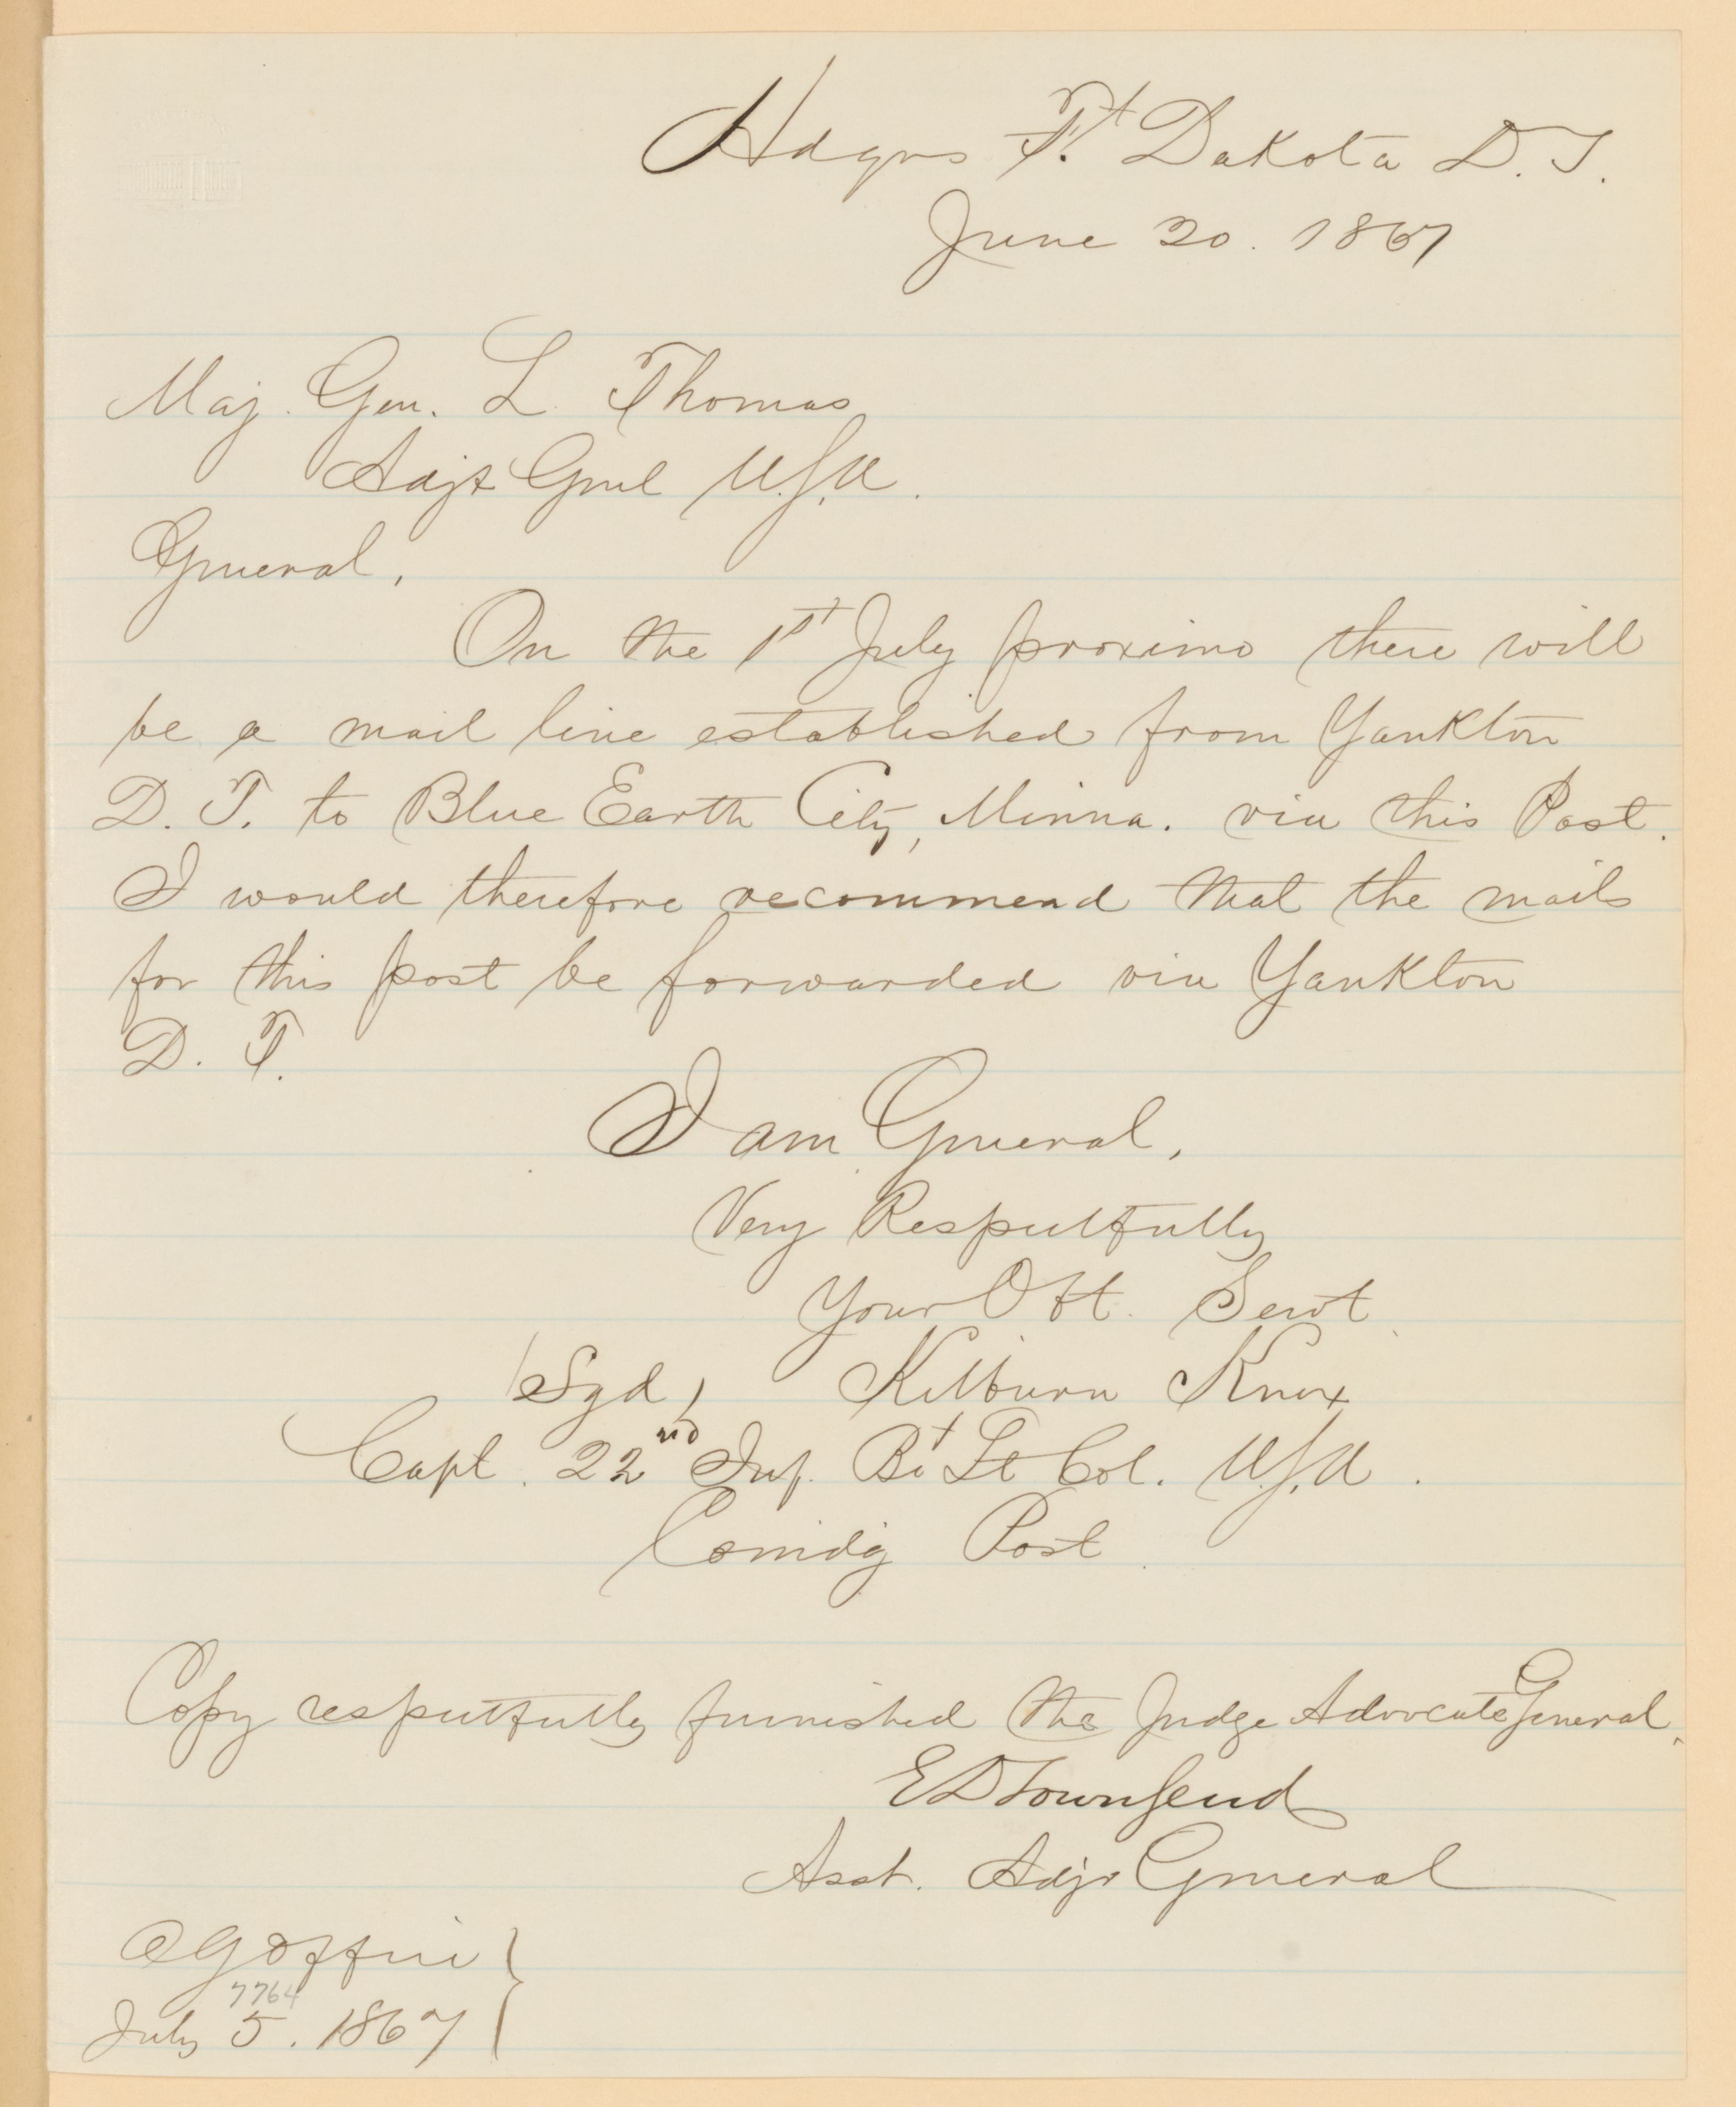 Hdqrs Ft. Dakota D.T.
June 20. 1867
Maj. Gen. L. Thomas
Adjt Genl U.S.A.
General,
On the 1st July proximo there will
be a mail line established from Yankton
D. T. to Blue Earth City, Minna. via this Post.
I would therefore recommend that the mails
for this post be forwarded via Yankton
D. T.
I am General,
Very Respectfully
Your Obt. Servt.
(Sgd) Kilburn Knox
Capt. 22nd Inf. Bt Lt Col. U.S.A.
Comdg Post.
Copy respectfully furnished the Judge Advocate General.
E D Townsend
Asst. Adjt General
A G Office
7764
July 5. 1867